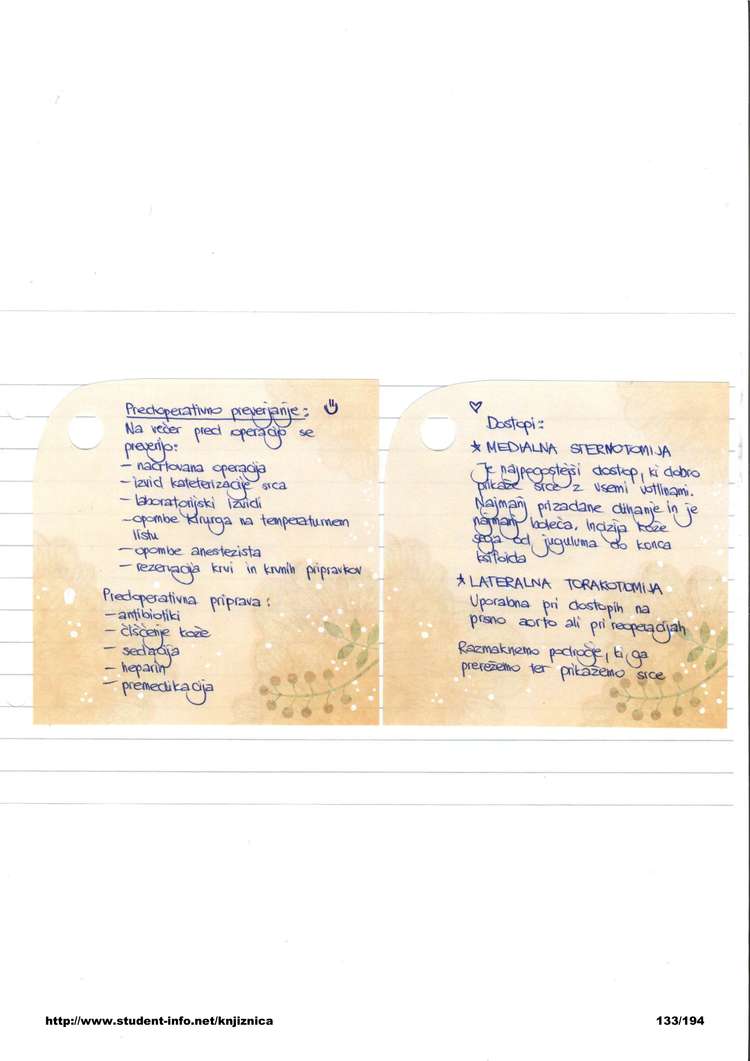 Predoperativno preverjanje:
Na večer pred operacijo se
preverijo:
- načrtovana operacija
- izvid kateterizacije srca
- laboratorijski izvidi
- opombe kirurga na temperaturnem
listu
- opombe anestezista
- rezervacija krvi in krvnih pripravkov
Predoperativna priprava:
- antibiotiki
- čiščenje kože
- sedacija
- heparin
- premedikacija
Dostopi:
* MEDIALNA STERNOTOMIJA
Je najpogostejši dostop, ki dobro
prikaže srce z vsemi votlinami.
Najmanj prizadane dihanje in je
najmanj boleča. Incizija kože
sega od juguluma do konca
ksifoida
* LATERALNA TORAKOTOMIJA
Uporabna pri dostopih na
prsno aorto ali pri reoperacijah
Razmaknemo področje, ki ga
prerežemo ter prikažemo srce
http://www.student-info.net/knjiznica
133/194